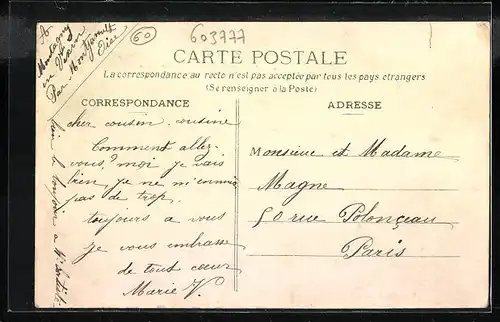 à
Montagny
en Vexin
Par Montjavoult
Oise
60
603777
CARTE POSTALE
La correspondance au recto n'est pas acceptée par tous les pays etrangers
(Se renseigner à la Poste)
CORRESPONDANCE
ADRESSE
cher cousin, cousine
Comment allez
vous? moi je vais
bien, je ne m'ennuie
pas de trop,
toujours a vous
je vous embrasse
de tout cœur
Marie V.
Monsieur et Madame
Magne
50 rue Polonçeau
Paris